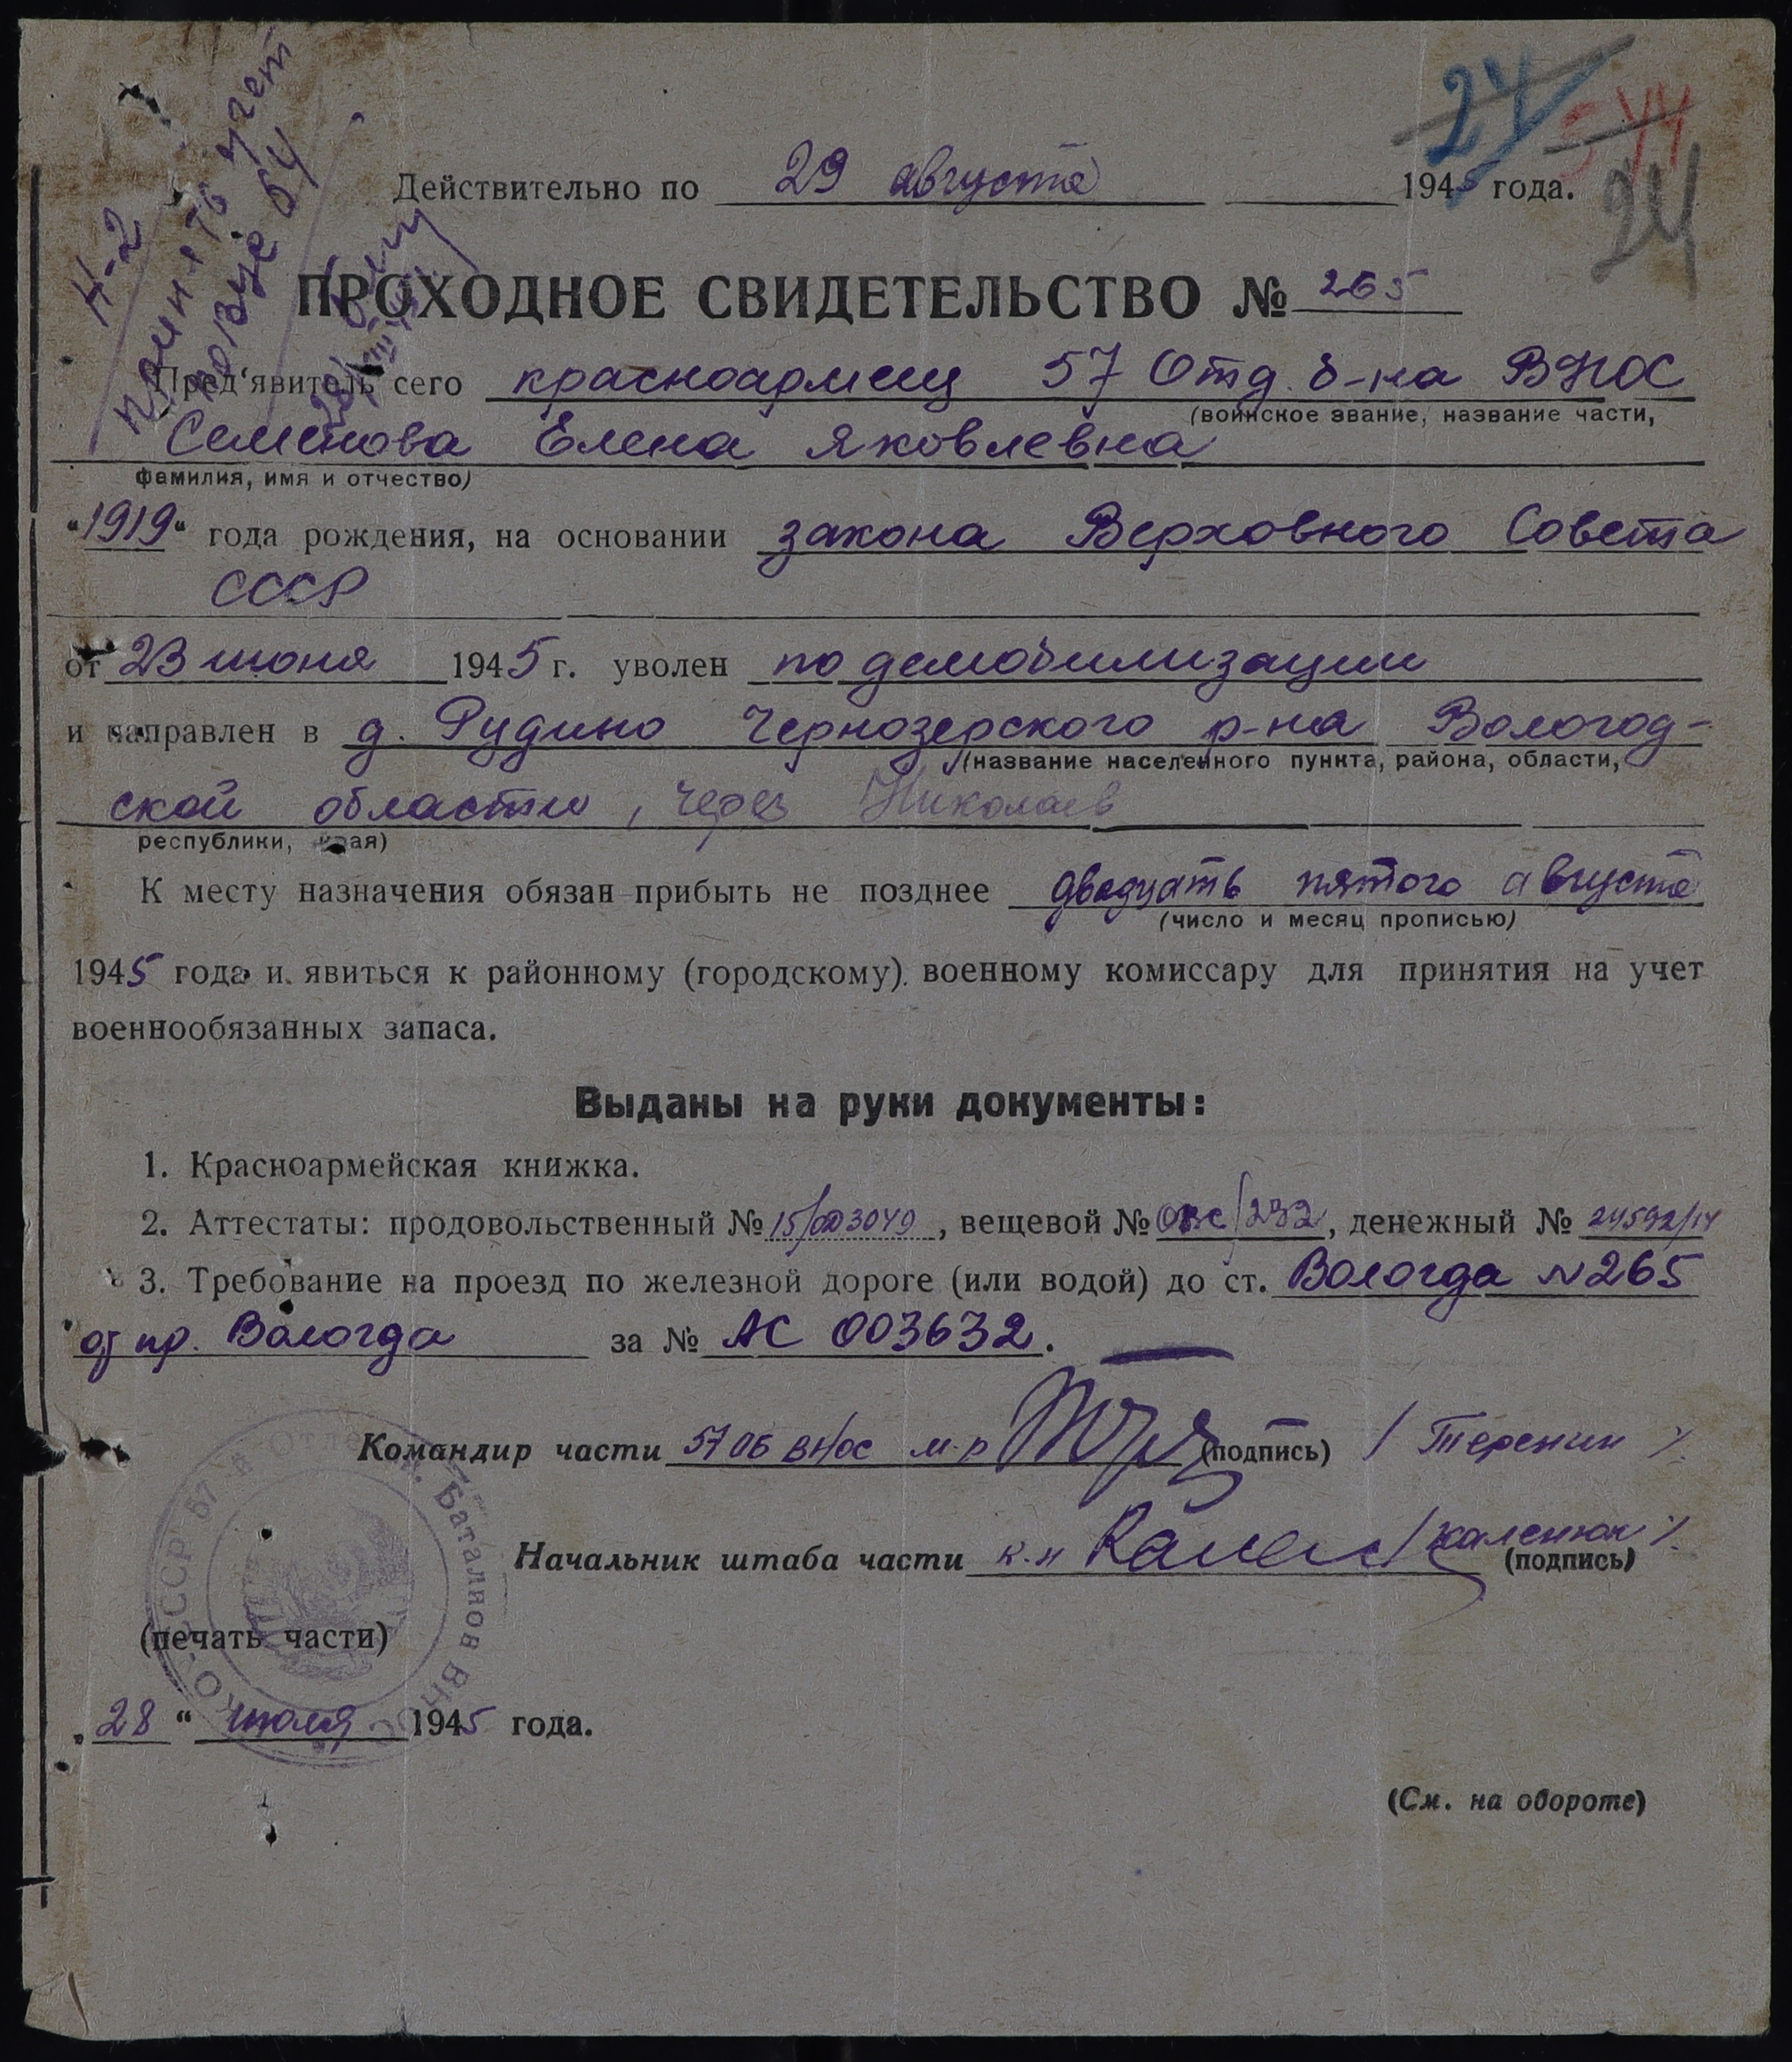 24
544
24
Н-2
принять на учет
Действительно по 29 августа 1945 года.
ПРОХОДНОЕ СВИДЕТЕЛЬСТВО № 265
Пред'явитель сего красноармеец 57 Отд. б-на ВНОС
(воинское звание, название части,
Семенова Елена Яковлевна
фамилия, имя и отчество)
"1919" года рождения, на основании закона Верховного Совета
СССР
от 23 июня 1945 г. уволен по демобилизации
и направлен в д. Рудино Чернозерского р-на Вологод-
(название населенного пункта, района, области,
ской области, через Николаев
республики, края)
К месту назначения обязан прибыть не позднее двадцать пятого августа
(число и месяц прописью)
1945 года и явиться к районному (городскому) военному комиссару для принятия на учет
военнообязанных запаса.
Выданы на руки документы:
1. Красноармейская книжка.
2. Аттестаты: продовольственный № 15/003049, вещевой № ОВС/232, денежный № 24592/14
3. Требование на проезд по железной дороге (или водой) до ст. Вологда N265
пр. Вологда за № АС 003632.
Командир части 57 ОБ ВНОС м-р (подпись) /Теренин/
Начальник штаба части к-н Кален /Каленюк/
(подпись)
(печать части)
"28" июля 1945 года.
(См. на обороте)